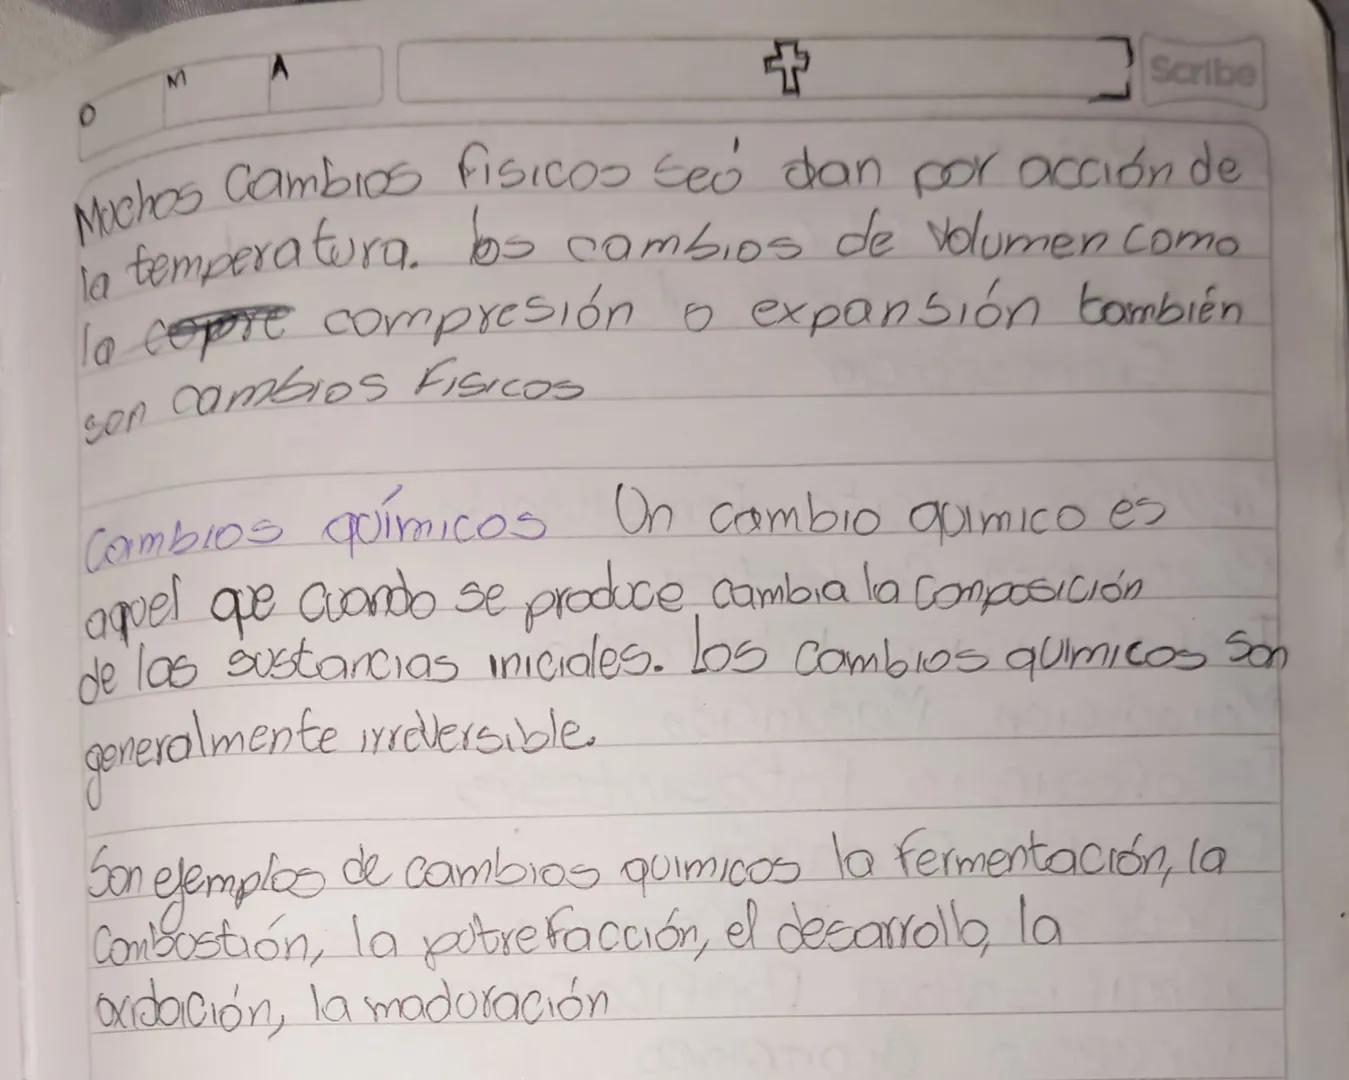 D M A Scribe
Muchos Cambios fisicos seó dan por acción de
la temperatura. los cambios de volumen como
la compresión o expansión también
son cambios Fisicos
Cambios químicos Un cambio quimico es
aquel que cuando se produce cambia la composición
de las sustancias iniciales. Los cambios quimicos son
generalmente irreversible.
Son ejemplos de cambios quimicos la fermentación, la
Combustión, la putrefacción, el desarrollo, la
oxidación, la maduración